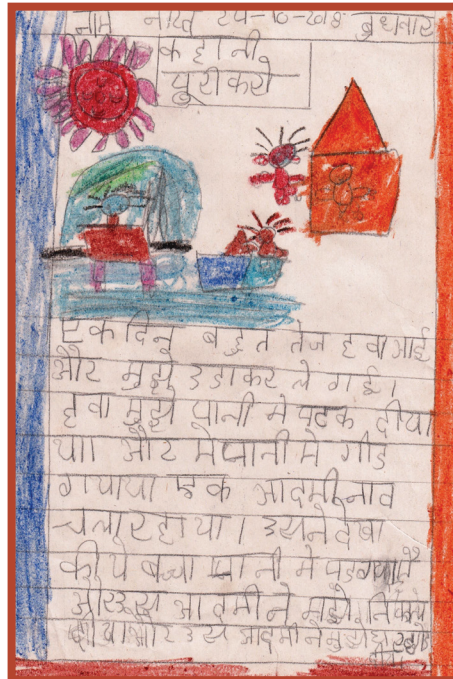 नाम नखि २५-१०-२०१८ बुधवार
कहानी
पूरी करो
एक दिन बहुत तेज हवा आई
और मुझे उडाकर ले गई।
हवा मुझे पानी मे पटक दीया
था और मे पानी मे गीर
गया था एक आदमी नाव
चला रहा था। उसने देखा
की ये बच्चा पानी मे पड गया है
और उस आदमी ने मुझे निकाल
दीया और उस आदमी ने मुझे